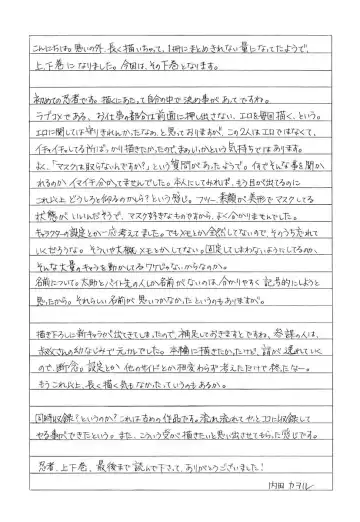 こんにちは。思いの外、長く描いちゃって、1冊にまとめきれない量になってたようで、
上、下巻になりました。今回は、その下巻となります。
初めての忍者です。描くにあたって自分の中で決め事があってですね。
ラブコメである、お仕事の都合は前面に押し出さない、エロを毎回描く、という。
エロに関しては守りきれんかったなぁ、と思っておりますが、この2人はエロではなくて、
イチャイチャしてるすがたばっかり描きたかったので、まぁいっかという気持ちではあります。
よく、「マスクは取らないんですか?」という質問があったようで。何でそんな事を聞か
れるのかイマイチ分かってませんでした。本人にしてみれば、もう目が出てるのに
これ以上どうしろと仰るのかしら?という感じ。フリー素顔が美形でマスクしてる
状態がいいんだそうで、マスク好きなものですから、よく分かりませんでした。
キャラクターの設定とか一応考えてました。でもメモとか全然してないので、そのうち忘れて
いくぜろうな。そういや大概メモとかしてない。固定してしまわないようにしてるのか、
そんな大量のキャラを動かしてるワケじゃないからなのか。
名前について。太助とバイト先の人しか名前がないのは、分かりやすく記号的にしようと
思ったから。それらしい名前が思いつかなかったというのもありますが。
描き下ろしに新キャラが出てきてしまったので、補足しておきますとですね、参謀の人は
叔父さんの幼なじみで元カレでした。本編に描きたかったけど、話が逸れていく
ので、断念。設定とか他のサイドとか相変わらず考えただけで終わったなー。
もうこれ以上、長く描く気もなかったっていうのもあるか。
同時収録?というのか?これはるめの作品です。流れ流れてやっとココに収録して
やる事ができたという。また、こういう空気が描きたいと思い出させてもらった感じです。
忍者、上下巻、最後まで読んで下さって、ありがとうございました!
内田カヲル